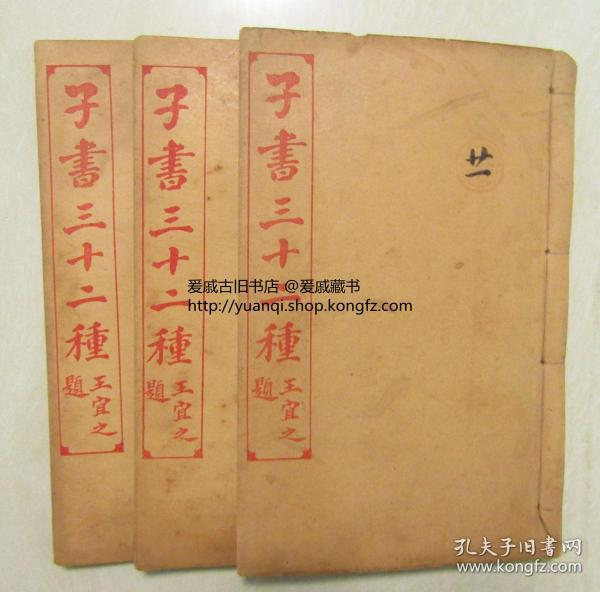 子書三十二種
王宜之
題
子書三十二種
王宜之
題
子書三十二種
王宜之
題
廿一
爱戚古旧书店 @爱戚藏书
http://yuanqi.shop.kongfz.com
孔夫子旧书网
www.kongfz.com